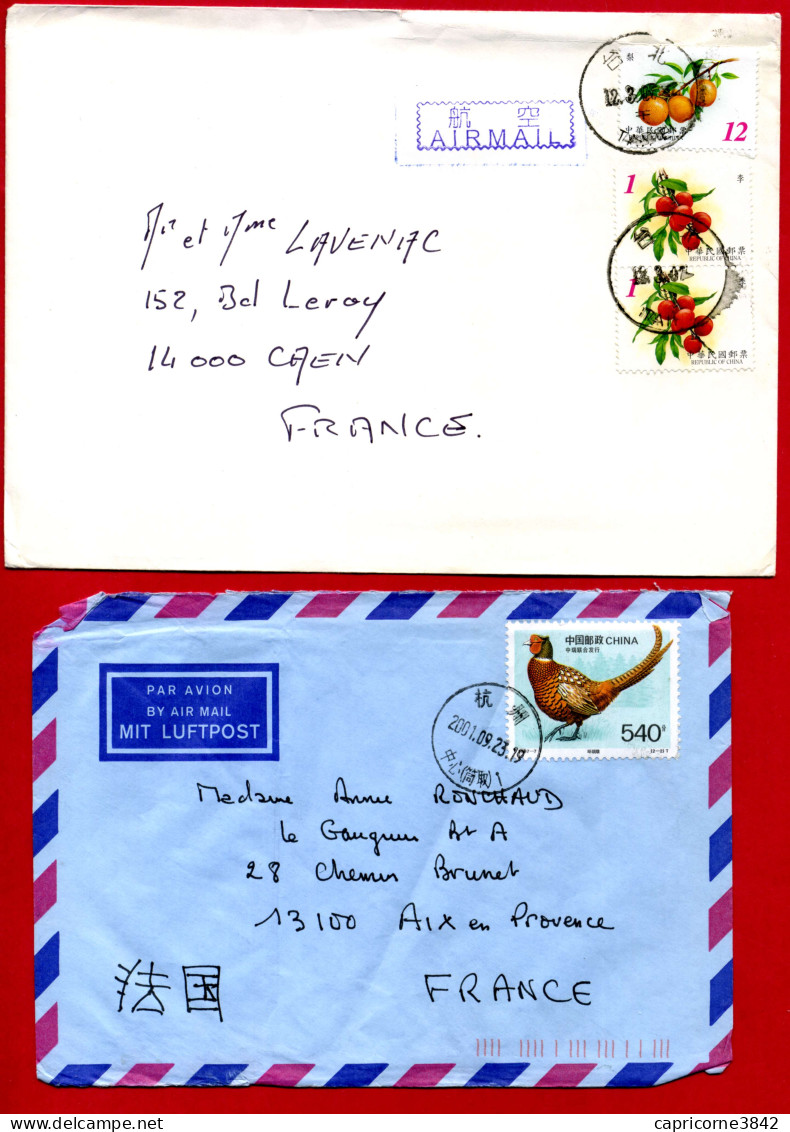 航 空
AIR MAIL
台 北
12
中華民國郵票
1
李
中華民國郵票
REPUBLIC OF CHINA
1
李
中華民國郵票
REPUBLIC OF CHINA
Mr et Mme LAVENIAC
152, Bd Leroy
14 000 CAEN
FRANCE.
PAR AVION
BY AIR MAIL
MIT LUFTPOST
中国邮政 CHINA
中瑞联合发行
540分
杭 州
2001.09.23.19
Madame Annie RONCHAUD
Le Gauguin Bt A
28 Chemin Brunet
13100 AIX en Provence
法国
FRANCE
capricorne3842